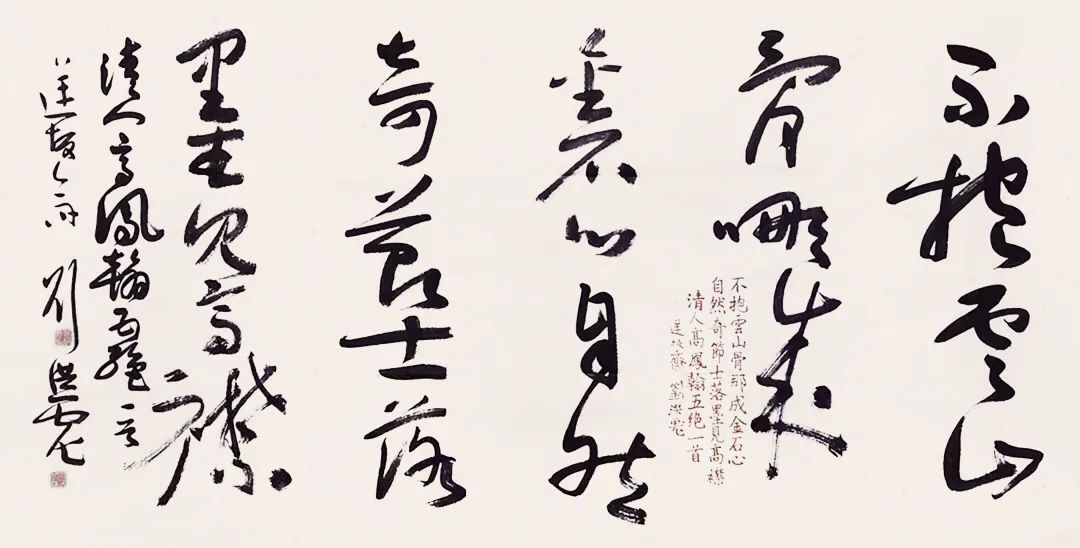 不抱雲山
骨哪成
金石心自然
奇節士落
墨見高襟
清人高鳳翰五絶一首
劉洪彪
不抱雲山骨那成金石心
自然奇節士落墨見高襟
清人高鳳翰五絶一首
齋 劉洪彪